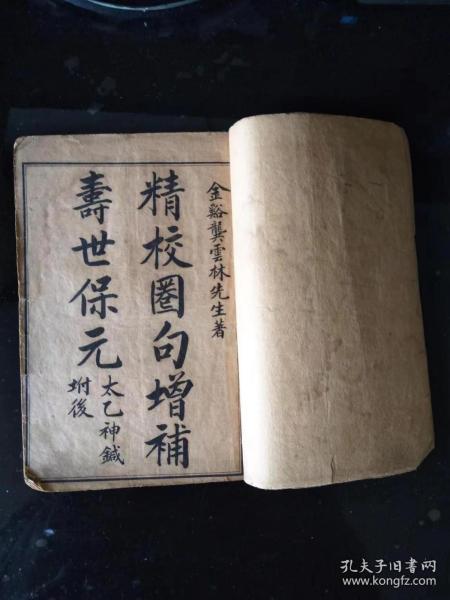 金谿龔雲林先生著
精校圈句增補
壽世保元
太乙神鍼
坿後
孔夫子旧书网
www.kongfz.com